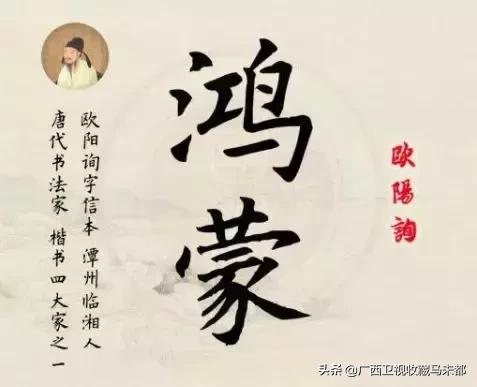 鸿蒙
欧陽詢
欧阳询字信本 潭州临湘人
唐代书法家 楷书四大家之一
头条@广西卫视收藏马未都